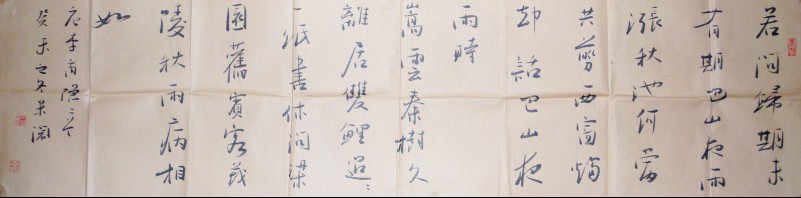 君問歸期未
有期巴山夜雨
漲秋池何當
共剪西窗燭
却話巴山夜
雨時
嵩雲秦樹久
離居雙鯉迢〻
一紙書休問梁
園舊賓客茂
陵秋雨病相
如
李商隱二首
癸未之冬